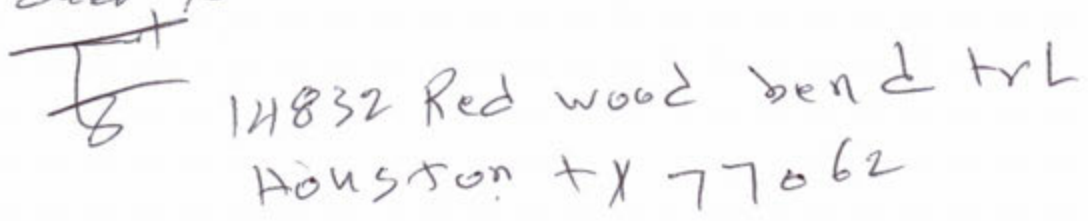 14832 Red wood bend trL
Houston tx 77062